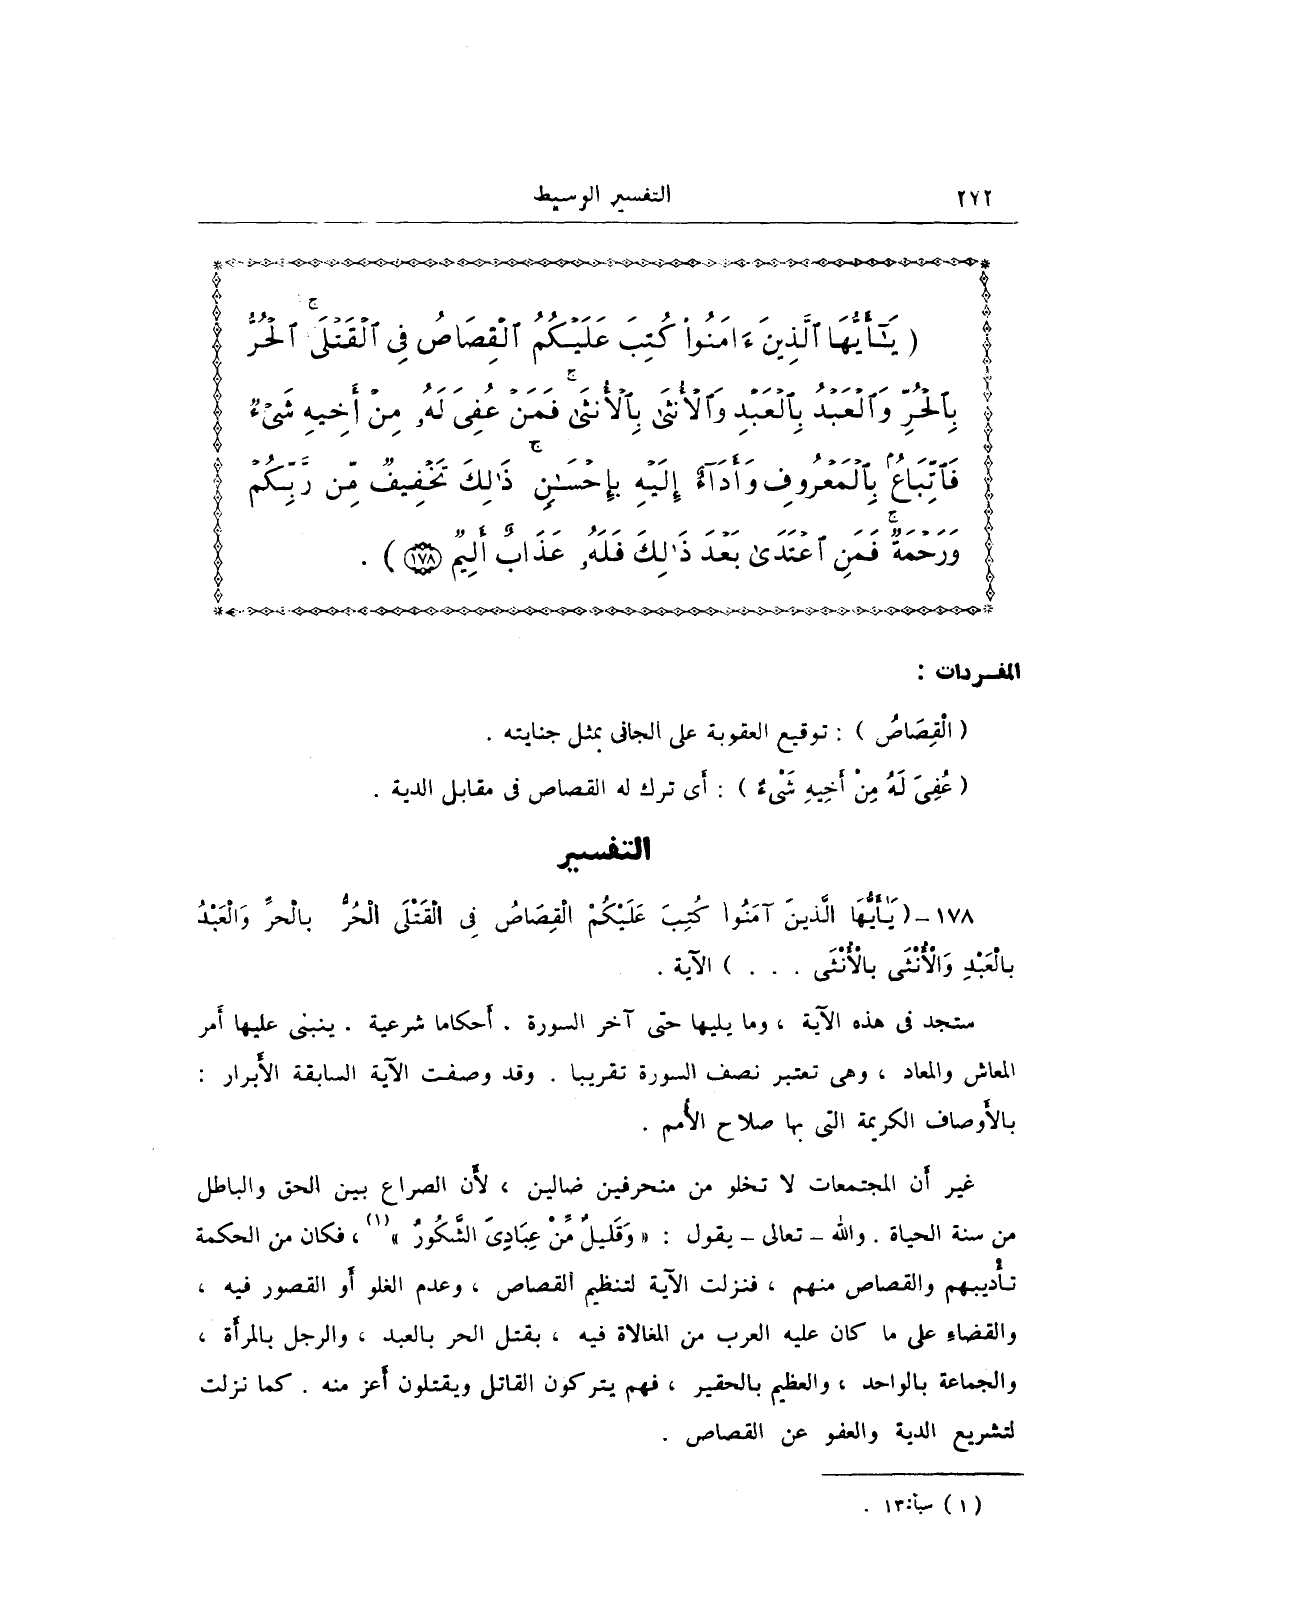 ٢٧٢
التفسير الوسيط
( يَـٰٓأَيُّهَا ٱلَّذِينَ ءَامَنُوا۟ كُتِبَ عَلَيْكُمُ ٱلْقِصَاصُ فِى ٱلْقَتْلَىۚ ٱلْحُرُّ
بِٱلْحُرِّ وَٱلْعَبْدُ بِٱلْعَبْدِ وَٱلْأُنثَىٰ بِٱلْأُنثَىٰۚ فَمَنْ عُفِىَ لَهُۥ مِنْ أَخِيهِ شَىْءٌ
فَٱتِّبَاعٌۢ بِٱلْمَعْرُوفِ وَأَدَآءٌ إِلَيْهِ بِإِحْسَـٰنٍۚ ذَٰلِكَ تَخْفِيفٌ مِّن رَّبِّكُمْ
وَرَحْمَةٌۚ فَمَنِ ٱعْتَدَىٰ بَعْدَ ذَٰلِكَ فَلَهُۥ عَذَابٌ أَلِيمٌ ١٧٨ ) .
المفردات :
( الْقِصَاصُ ) : توقيع العقوبة على الجانى بمثل جنايته .
( عُفِىَ لَهُ مِنْ أَخِيهِ شَىْءٌ ) : أى ترك له القصاص فى مقابل الدية .
التفسير
١٧٨ - ( يَٰأَيُّهَا الَّذينَ آمَنُوا كُتِبَ عَلَيْكُمْ الْقِصَاصُ فِى الْقَتْلَى الْحُرُّ بالْحرِّ وَالْعَبْدُ
بالْعَبْدِ وَالْأُنْثَى بالْأُنْثَى . . . ) الآية .
ستجد فى هذه الآية ، وما يليها حتى آخر السورة . أحكاما شرعية . ينبنى عليها أمر
المعاش والمعاد ، وهى تعتبر نصف السورة تقريبا . وقد وصفت الآية السابقة الأبرار :
بالأوصاف الكريمة التى بها صلاح الأمم .
غير أن المجتمعات لا تخلو من منحرفين ضالين ، لأن الصراع بين الحق والباطل
من سنة الحياة . والله - تعالى - يقول : « وَقَليلٌ مِّنْ عِبَادِىَ الشَّكُورُ » (١) ، فكان من الحكمة
تأديبهم والقصاص منهم ، فنزلت الآية لتنظيم القصاص ، وعدم الغلو أو القصور فيه ،
والقضاء على ما كان عليه العرب من المغالاة فيه ، بقتل الحر بالعبد ، والرجل بالمرأة ،
والجماعة بالواحد ، والعظيم بالحقير ، فهم يتركون القاتل ويقتلون أعز منه . كما نزلت
لتشريع الدية والعفو عن القصاص .
( ١ ) سبأ:١٣ .